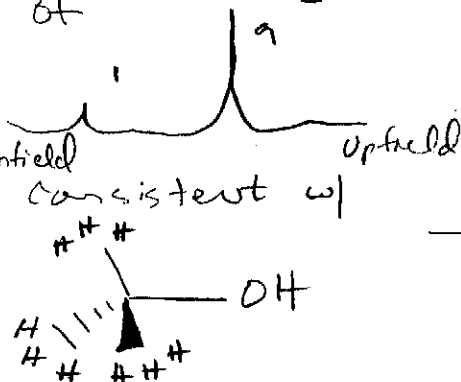 of
9
1
nfield
Upfield
consistent w/
H H H
OH
H
H H H H H